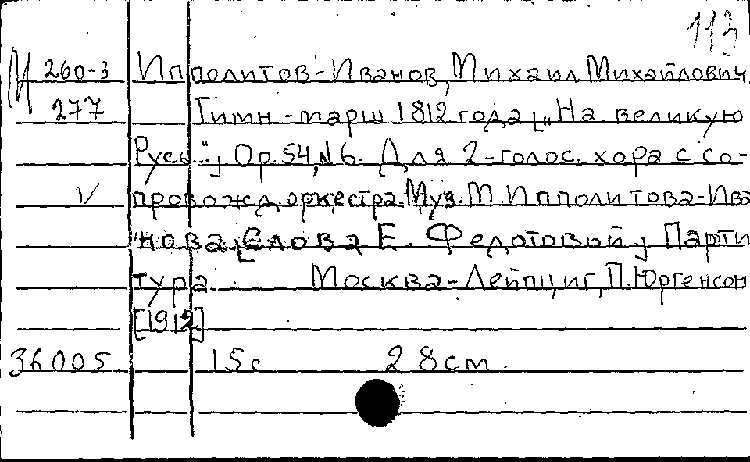 113
М 260-3 Ипполитов-Иванов, Михаил Михайлович.
277 Гимн-марш 1812 года [„На великую
Русь"], Ор. 54, №6. Для 2-голос. хора с со-
V провожд. оркестра. Муз. М. Ипполитова-Ива
нова [Слова Е. Федотовой]. Парти
тура. Москва-Лейпциг, П. Юргенсон
[1912]
36005 15с 28см.